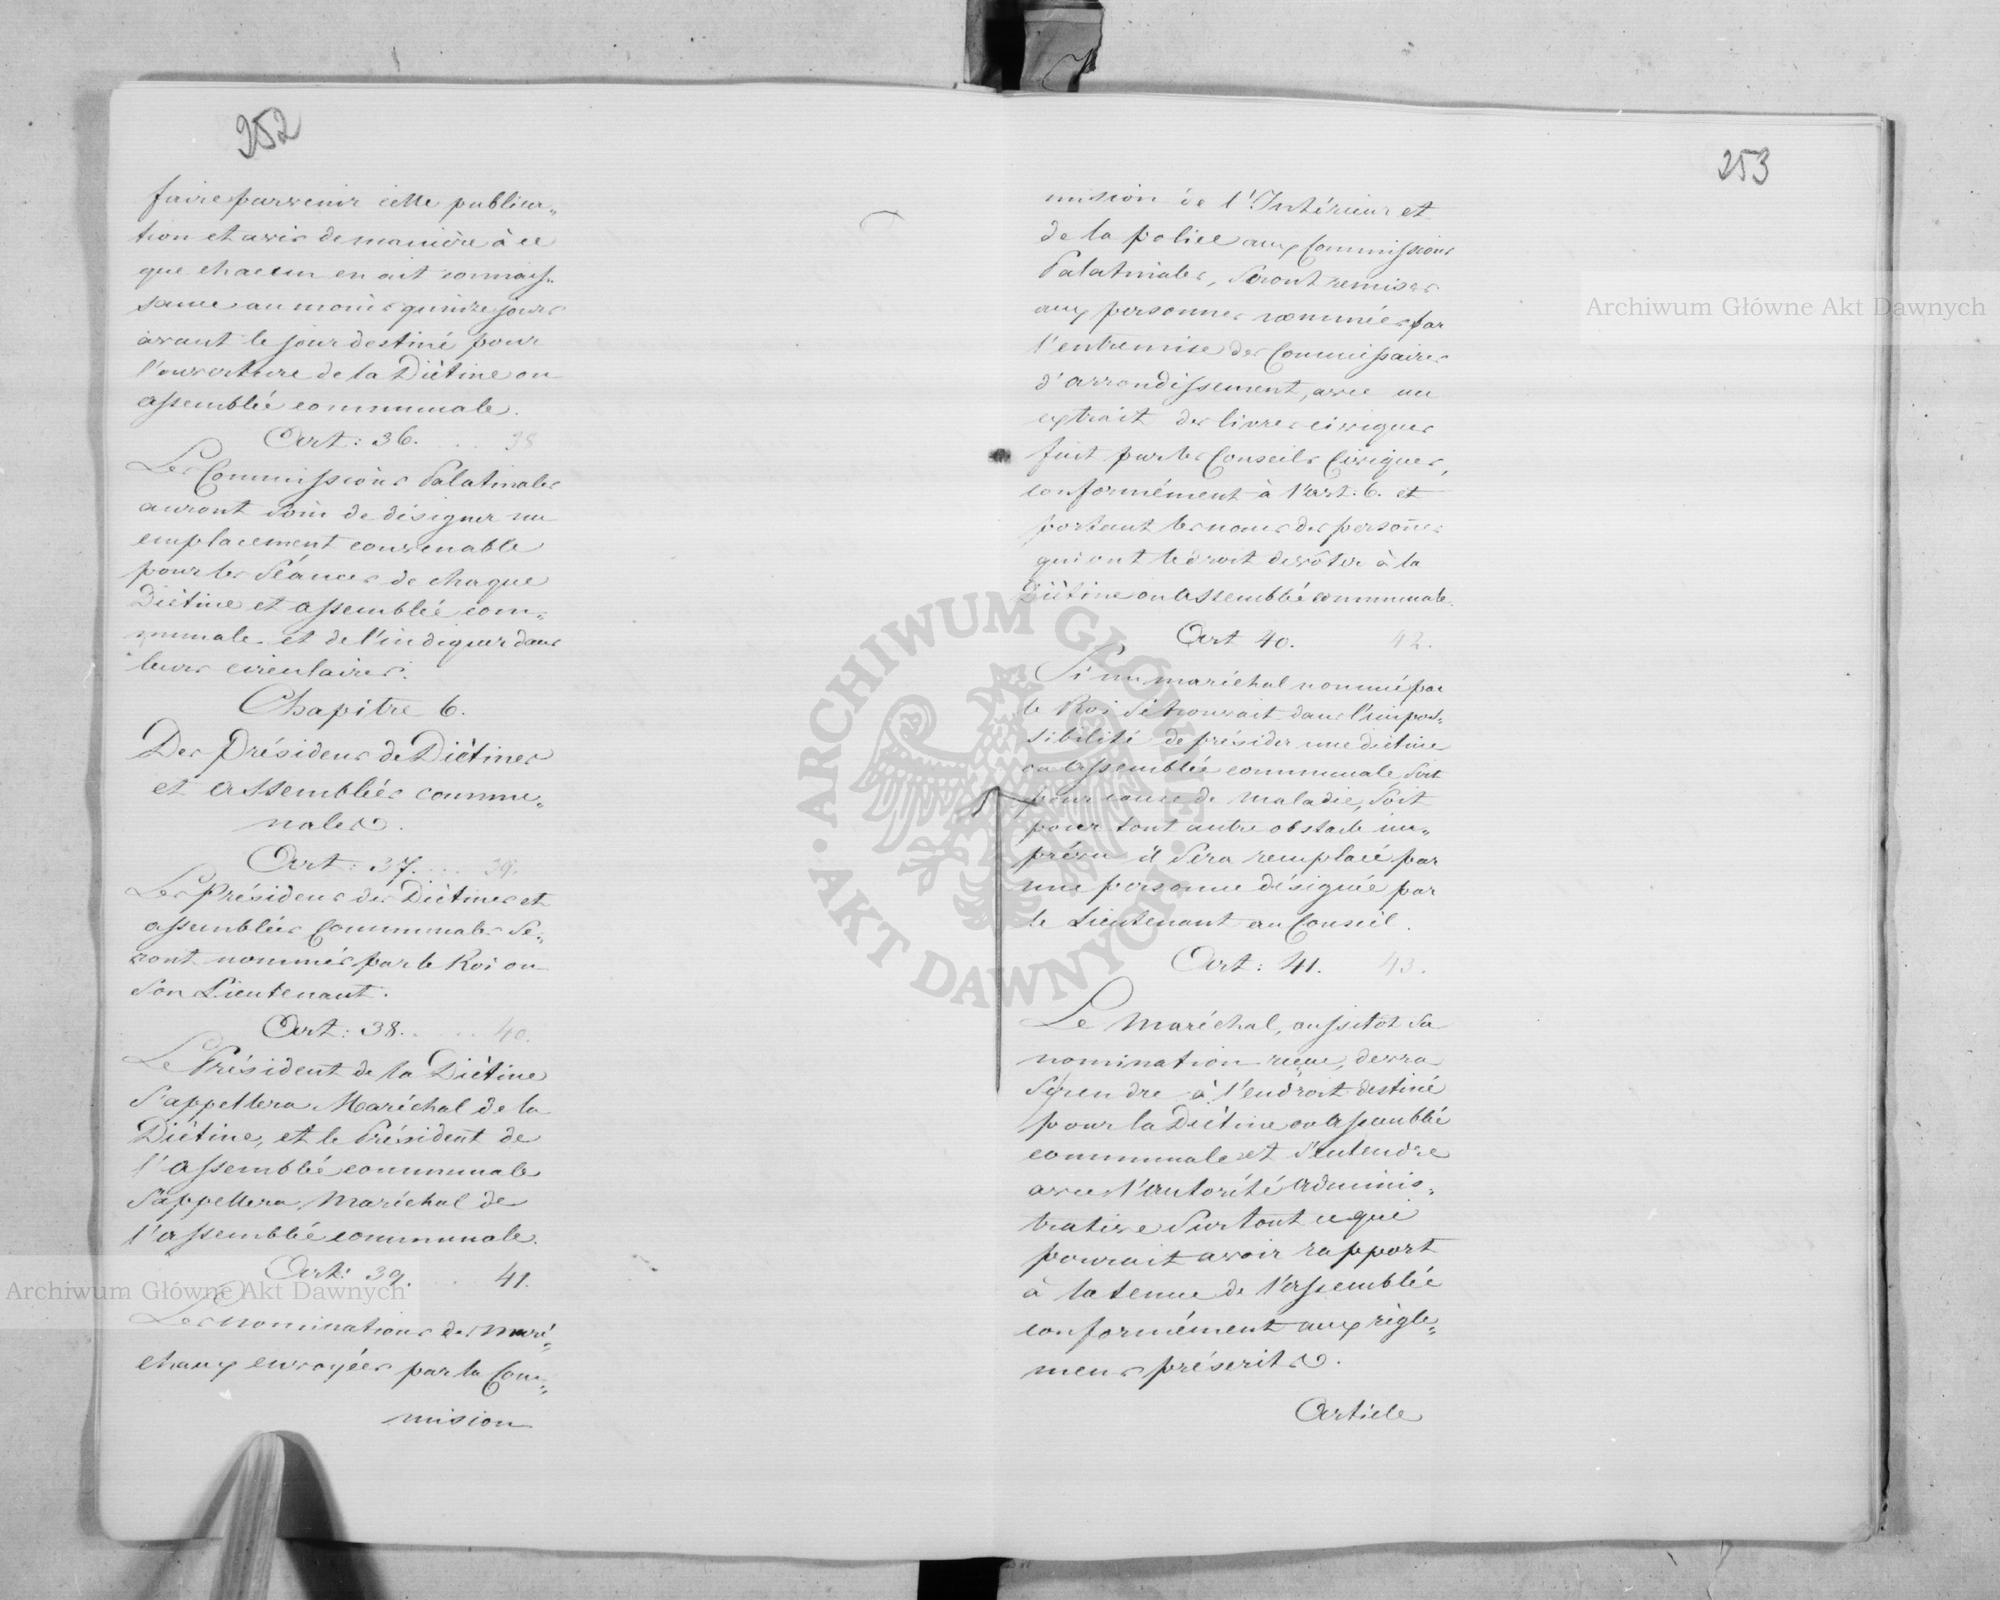 252
faire parvenir cette publica„
tion et avis de manière à ce
que chacun en ait connais„
sance au moins quinze jours
avant le jour destiné pour
l'ouverture de la Diètine ou
assemblée communale.
Art: 36. . . . 38
Les Commissions Palatinales
auront soin de désigner un
emplacement convenable
pour les Séances de chaque
Diètine et assemblée com„
munale et de l'indiquer dans
leurs circulaires.
Chapitre 6.
Des Présidens de Diètines
et assemblées commu„
nales.
Art: 37. . . . 39.
Les Présidens des Diètines et
assemblées Communales Se„
ront nommés par le Roi ou
Son Lieutenant.
Art: 38. . . . 40.
Le Président de la Diètine
S'appellera Maréchal de la
Diètine, et le Président de
l'assemblée communale
S'appellera Maréchal de
l'assemblée communale.
Art: 39. . . . 41.
Les nominations des Maré„
chaux envoyées par la Com„
mision
253
mision de l'Intérieur et
de la police aux Commissions
Palatinales, Seront remises
aux personnes nommées par
l'entremise des Commissaires
d'arrondissement, avec un
extrait des livres civiques
fait par les Conseils Civiques,
conformément à l'art: 6. et
portant les noms des persones
qui ont le droit de vôter à la
Diètine ou assemblée communale.
Art 40. 42.
Si un maréchal nommé par
le Roi Se trouvait dans l'impos„
sibilité de présider une diètine
ou assemblée communale Soit
pour cause de maladie, Soit
pour tout autre obstacle im„
prévu il Sera remplacé par
une personne désignée par
le Lieutenant au Conseil.
Art: 41. 43.
Le Maréchal, aussitot Sa
nomination reçue, devra
Se rendre à l'endroit destiné
pour la Diètine ou assemblée
communale et S'entendre
avec l'autorité adminis„
trative Sur tout ce que
pourait avoir rapport
à la tenue de l'assemblée
conformément aux règle„
mens préscrits.
Article
Archiwum Główne Akt Dawnych
Archiwum Główne Akt Dawnych
ARCHIWUM GŁÓWNE
AKT DAWNYCH